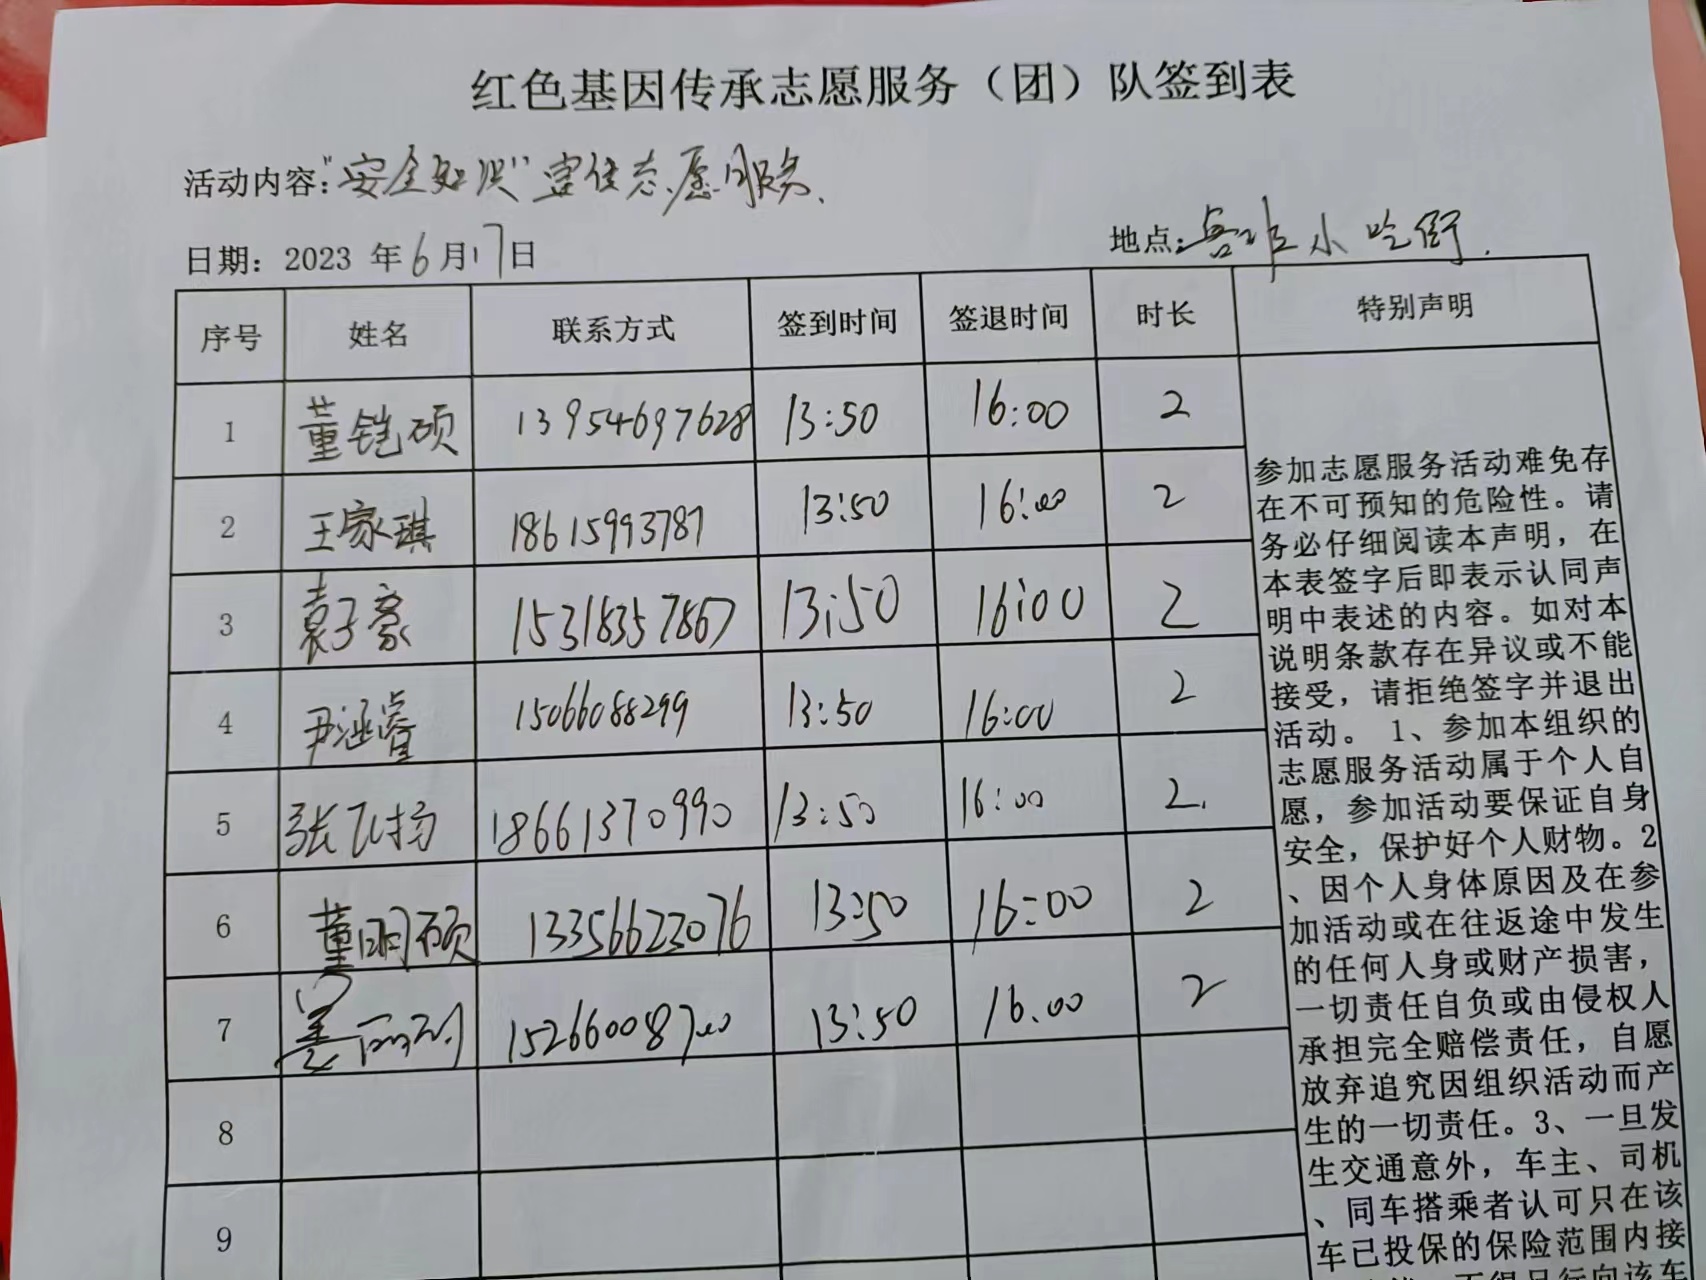 红色基因传承志愿服务（团）队签到表
活动内容："安全知识"宣传志愿服务.
日期：2023 年6月17日 地点：小吃街.
序号 姓名 联系方式 签到时间 签退时间 时长 特别声明
1 董铠硕 13954697628 13:50 16:00 2
2 王家琪 18615993787 13:50 16:00 2
3 袁子豪 15318357867 13:50 16:00 2
4 尹涵睿 15066088299 13:50 16:00 2
5 张飞扬 18661370990 13:50 16:00 2.
6 董明硕 13356623076 13:50 16:00 2
7 15266008700 13:50 16.00 2
8
9
参加志愿服务活动难免存
在不可预知的危险性。请
务必仔细阅读本声明，在
本表签字后即表示认同声
明中表述的内容。如对本
说明条款存在异议或不能
接受，请拒绝签字并退出
活动。 1、参加本组织的
志愿服务活动属于个人自
愿，参加活动要保证自身
安全，保护好个人财物。2
、因个人身体原因及在参
加活动或在往返途中发生
的任何人身或财产损害，
一切责任自负或由侵权人
承担完全赔偿责任，自愿
放弃追究因组织活动而产
生的一切责任。3、一旦发
生交通意外，车主、司机
、同车搭乘者认可只在该
车已投保的保险范围内接